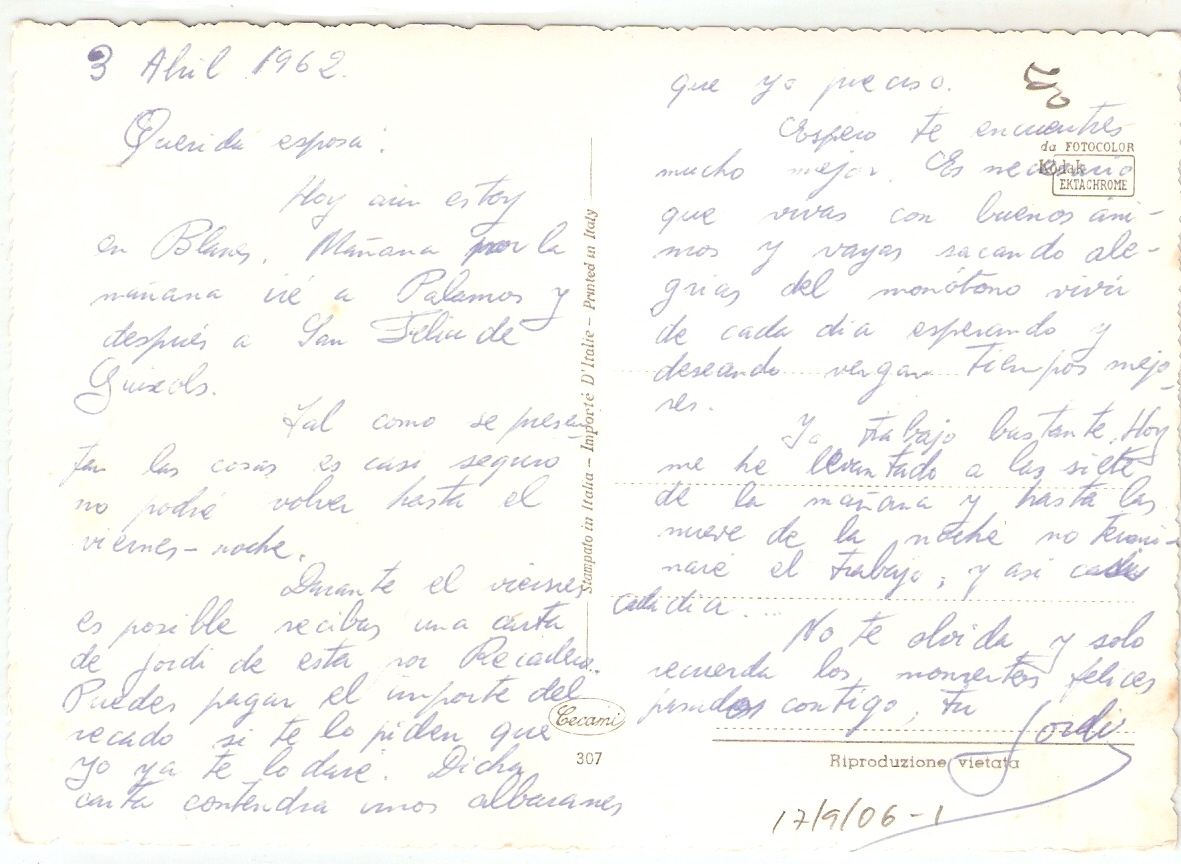 3 Abril 1962.
Querida esposa:
Hoy aún estoy
en Blanes. Mañana por la
mañana iré a Palamos y
después a San Feliu de
Guixols.
Tal como se presen-
tan las cosas es casi seguro
no podré volver hasta el
viernes-noche.
Durante el viernes
es posible recibas una carta
de Jordi de esta por Recadero.
Puedes pagar el importe del
recado si te lo piden que
yo ya te lo daré. Dicha
carta contendra unos albaranes
que yo preciso.
Espero te encuentres
mucho mejor. Es necesario
que vivas con buenos áni-
mos y vayas sacando ale-
grias del monótono vivir
de cada dia esperando y
deseando vengan tiempos mejo-
res.
Yo trabajo bastante. Hoy
me he levantado a las siete
de la mañana y hasta las
nueve de la noche no termi-
naré el trabajo, y asi
cada dia...
No te olvida y solo
recuerda los momentos felices
pasados contigo, tu
Jordi
50
da FOTOCOLOR
Kodak
EKTACHROME
Stampato in Italia - Importé D'Italie - Printed in Italy
Cecami
307
Riproduzione vietata
17/9/06-1